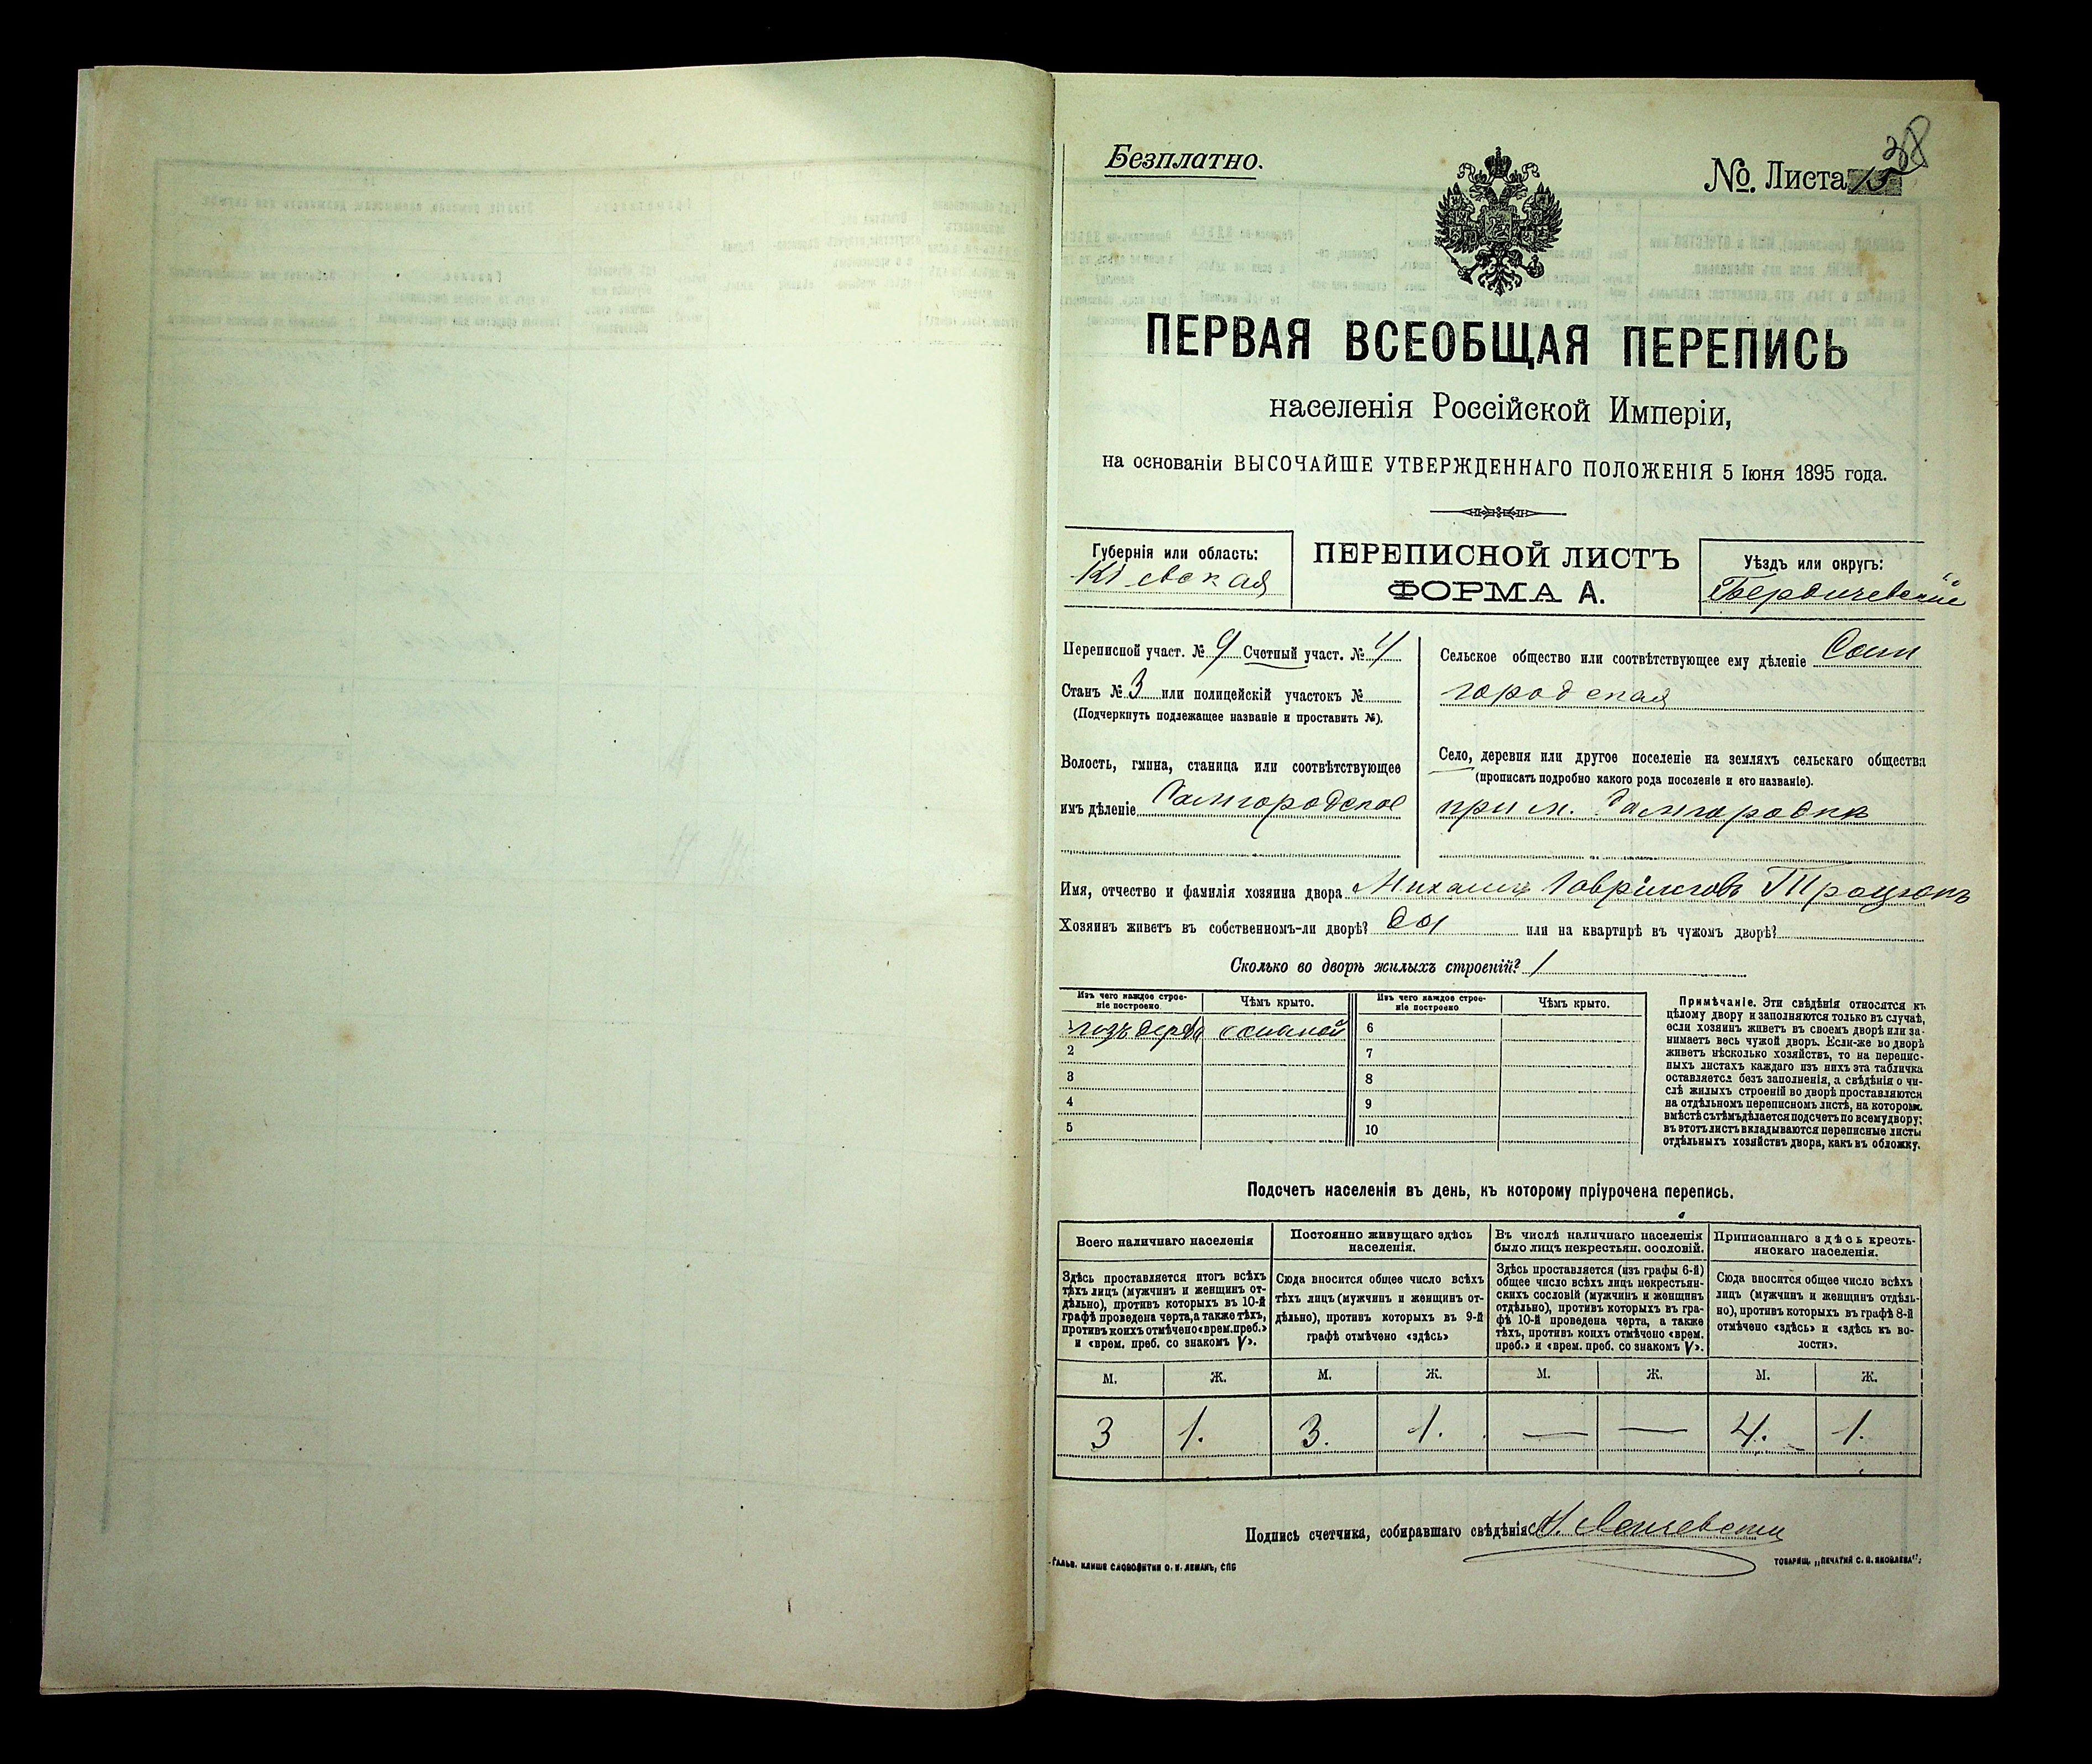 38
Безплатно.
№. Листа 15
ПЕРВАЯ ВСЕОБЩАЯ ПЕРЕПИСЬ
населенія Россійской Имперіи,
на основаніи ВЫСОЧАЙШЕ УТВЕРЖДЕННАГО ПОЛОЖЕНІЯ 5 Іюня 1895 года.
Губернія или область:
Кіевская
ПЕРЕПИСНОЙ ЛИСТЪ
ФОРМА А.
Уѣздъ или округъ:
Бердичевскій
Переписной участ. № 9 Счетный участ. № 4
Станъ № 3 или полицейскій участокъ №
(Подчеркнуть подлежащее названіе и проставить №).
Волость, гмина, станица или соотвѣтствующее
имъ дѣленіе Самгородское
Сельское общество или соотвѣтствующее ему дѣленіе Сам
городская
Село, деревня или другое поселеніе на земляхъ сельскаго общества
(прописать подробно какого рода поселеніе и его названіе).
при м. Самгородкѣ
Имя, отчество и фамилія хозяина двора Михаилъ Гавриловъ
Хозяинъ живетъ въ собственномъ-ли дворѣ? да или на квартирѣ въ чужомъ дворѣ?
Сколько во дворѣ жилыхъ строеній? 1
Изъ чего каждое строе-
ніе построено
Чѣмъ крыто.
Изъ чего каждое строе-
ніе построено
Чѣмъ крыто.
1 изъ дерева соломой 6
2 7
3 8
4 9
5 10
Примѣчаніе. Эти свѣдѣнія относятся къ
цѣлому двору и заполняются только въ случаѣ,
если хозяинъ живетъ въ своемъ дворѣ или за-
нимаетъ весь чужой дворъ. Если-же во дворѣ
живетъ нѣсколько хозяйствъ, то на перепис-
ныхъ листахъ каждаго изъ нихъ эта табличка
оставляется безъ заполненія, а свѣдѣнія о чи-
слѣ жилыхъ строеній во дворѣ проставляются
на отдѣльномъ переписномъ листѣ, на которомъ
вмѣстѣ съ тѣмъ дѣлается подсчетъ по всему двору;
въ этотъ листъ вкладываются переписные листы
отдѣльныхъ хозяйствъ двора, какъ въ обложку.
Подсчетъ населенія въ день, къ которому пріурочена перепись.
Всего наличнаго населенія
Здѣсь проставляется итогъ всѣхъ
тѣхъ лицъ (мужчинъ и женщинъ от-
дѣльно), противъ которыхъ въ 10-й
графѣ проведена черта, а также тѣхъ,
противъ коихъ отмѣчено «врем. преб.»
и «врем. преб. со знакомъ V».
Постоянно живущаго здѣсь
населенія.
Сюда вносится общее число всѣхъ
тѣхъ лицъ (мужчинъ и женщинъ от-
дѣльно), противъ которыхъ въ 9-й
графѣ отмѣчено «здѣсь»
Въ числѣ наличнаго населенія
было лицъ некрестьян. сословій.
Здѣсь проставляется (изъ графы 6-й)
общее число всѣхъ лицъ некрестьян-
скихъ сословій (мужчинъ и женщинъ
отдѣльно), противъ которыхъ въ гра-
фѣ 10-й проведена черта, а также
тѣхъ, противъ коихъ отмѣчено «врем.
преб.» и «врем. преб. со знакомъ V».
Приписаннаго здѣсь кресть-
янскаго населенія.
Сюда вносится общее число всѣхъ
лицъ (мужчинъ и женщинъ отдѣль-
но), противъ которыхъ въ графѣ 8-й
отмѣчено «здѣсь» и «здѣсь въ во-
лости».
М. Ж. М. Ж. М. Ж. М. Ж.
3 1. 3. 1. — — 4. 1.
Подпись счетчика, собиравшаго свѣдѣнія
Гальв. клише словолитни О. И. Леманъ, СПБ
Товарищ. „Печатня С. П. Яковлева“.